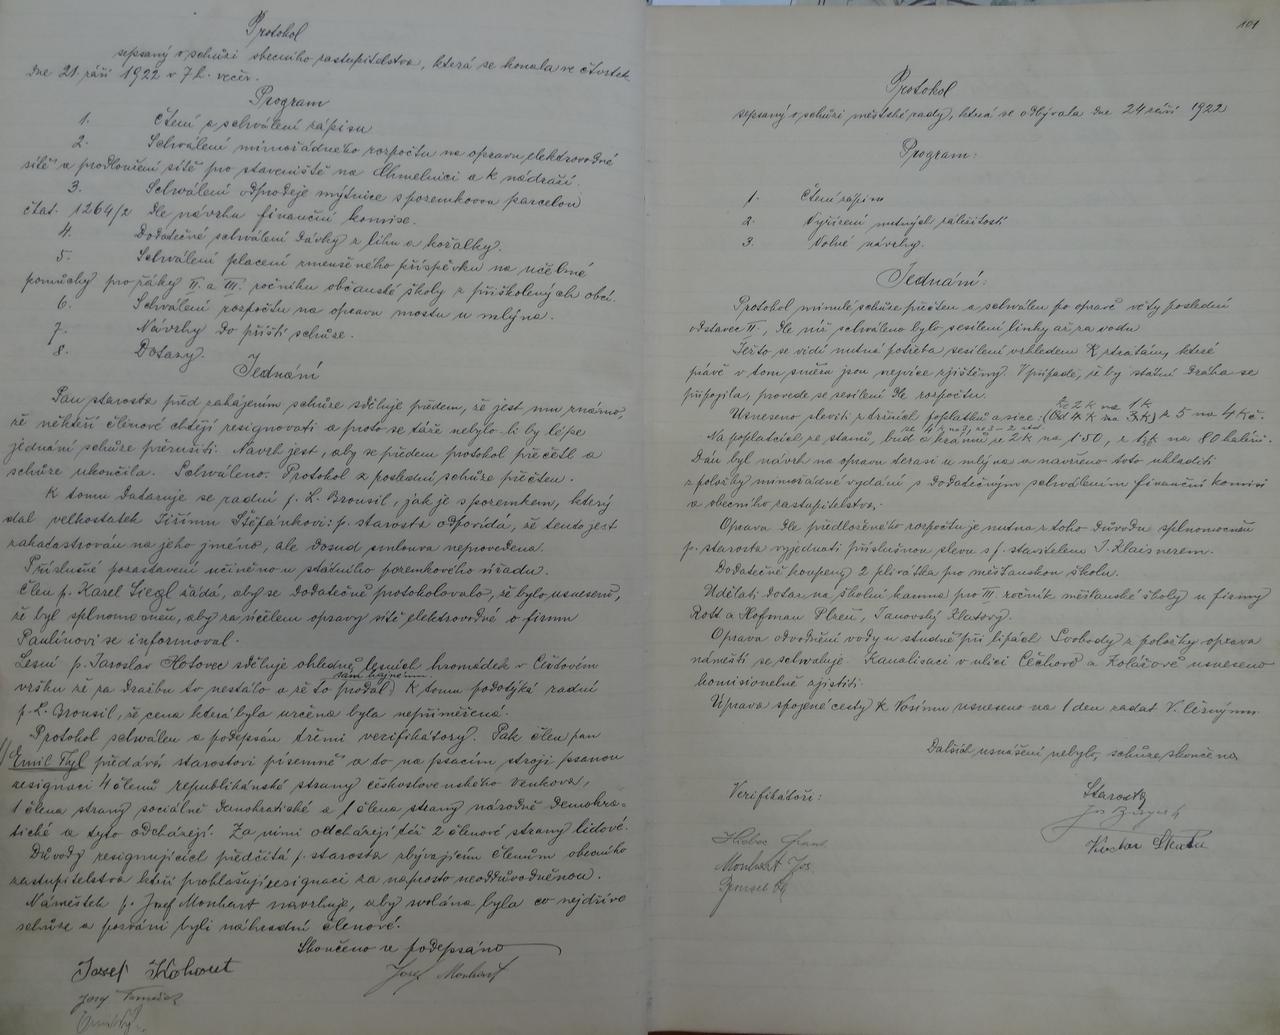 Protokol
sepsaný v schůzi obecního zastupitelstva, která se konala ve čtvrtek
dne 21. září 1922 v 7 h. večer.
Program
1. Čtení a schválení zápisu
2. Schválení mimořádného rozpočtu na opravu elektrovodné
sítě a prodloužení sítě pro staveniště na Chmelnici a k nádraží.
3. Schválení odprodeje mýtnice s pozemkovou parcelou
čkat. 1264/2 dle návrhu finanční komise.
4. Dodatečné schválení dávky z lihu a kořalky.
5. Schválení placení zmenšeného příspěvku na učebné
pomůcky pro žáky II. a III. ročníku občanské školy z přiškolených obcí.
6. Schválení rozpočtu na opravu mostu u mlýna.
7. Návrhy do příští schůze.
8. Dotazy.
Jednání
Pan starosta před zahájením schůze sděluje předem, že jest mu známo,
že někteří členové chtějí resignovati a proto se táže nebylo-li by lépe
jednání schůze přerušiti. Návrh jest, aby se předem protokol přečetl a
schůze ukončila. Schváleno. Protokol z poslední schůze přečten.
K tomu dotazuje se radní p. L. Brousil, jak je s pozemkem, který
dal velkostatek Jiřímu Štěpánkovi: p. starosta odpovídá, že tendo jest
zakadastrován na jeho jméno, ale dosud smlouva neprovedena.
Příslušné pozastavení učiněno u státního pozemkového úřadu.
Člen p. Karel Siegl žádá, aby se dodatečně protokolovalo, že bylo usneseno,
že byl splnomocněn, aby za účelem opravy sítě elektrovodné o firmu
Paulínovi se informoval.
Lesní p. Jaroslav Hotovec sděluje ohledně lesních hromádek v Čížovém
vršku že za dražbu to nestálo a že to prodal sám hajnému. K tomu podotýká radní
p. L. Brousil, že cena která byla určena byla nepřiměřená.
Protokol schválen a podepsán třemi verifikátory. Pak člen pan
Emil Tyl předává starostovi písemně a do na psacím stroji psanou
resignaci 4 členů republikánské strany československého venkova,
1 člena strany sociálně demokratické a 1 člena strany národně demokra-
tické a tyto odcházejí. Za nimi odcházejí též 2 členové strany lidové.
Důvody resignujících předčítá p. starosta zbývajícím členům obecního
zastupitelstva kteří prohlašují resignaci za naprosto neodůvodněnou.
Náměstek p. Josef Monhart navrhuje, aby svolána byla co nejdříve
schůze a pozváni byli náhradní členové.
Skončeno a podepsáno
Josef Kohout Josef Monhart
Josef
101
Protokol
sepsaný v schůzi městské rady, která se odbývala dne 24 září 1922
Program:
1. Čtení zápisu
2. Vyřízení nutných záležitostí
3. Volné návrhy.
Jednání:
Protokol minulé schůze přečten a schválen po opravě věty poslední
odstavec II. dle níž schváleno bylo sesílení linky až za vodu
Ježto se vidí nutná potřeba sesílení vzhledem k ztrátám, které
právě v tom směru jsou nejvíce zjištěny. V případě, že by státní dráha se
připojila, provede se sesílení dle rozpočtu.
Usneseno sleviti z tržních poplatků a sice: ze 2 K na 1 K (od 4 K na 3 K) z 5 na 4 Kč.
Na poplatcích ze stanů, bud a krámů z 2 K na 1·50, z 1 K na 80 haléřů.
Dán byl návrh na opravu terasi u mlýna a navrženo toto uhladiti
z položky mimořádné vydání s dodatečným schválením finanční komisí
a obecního zastupitelstva.
Oprava dle předloženého rozpočtu je nutna z toho důvodu splnomocněn
p. starosta vyjednati příslušnou slevu s p. stavitelem J. Klaisnerem.
Dodatečně koupeny 2 plivátka pro měšťanskou školu.
Udělati dotaz na školní kamna pro III ročník měšťanské školy u firmy
Rott a Hofman Plzeň, Janovský Klatovy.
Oprava odvodnění vody u studně při lípách Svobody z položky oprava
náměstí se schvaluje. Kanalisaci v ulici Čechově a Kolářově usneseno
komisionelně zjistiti.
Úprava spojené cesty k Vosímu usneseno na 1 den zadat V. Černýmu
Dalších usnášení nebylo, schůze skončena
Verifikátoři: Starosta
Monhart Jos.